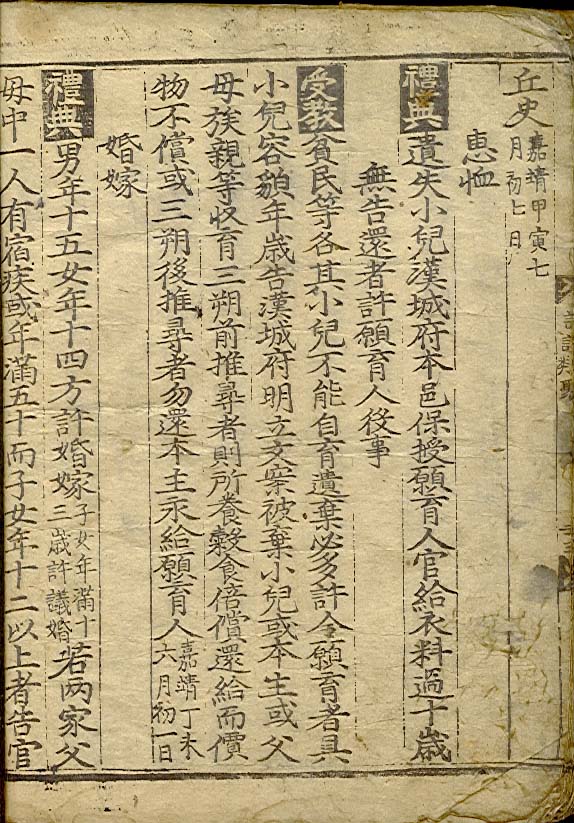 丘史嘉靖甲寅七月初七日
惠恤
禮典遺失小兒漢城府本邑保授願育人官給衣料過十歲
無告還者許願育人役事
受教貧民等各其小兒不能自育遺棄必多許令願育者具
小兒容貌年歲告漢城府明立文案被棄小兒或本生或父
母族親等收育三朔前推尋者則所養穀食倍償還給而價
物不償或三朔後推尋者勿還本主永給願育人嘉靖丁未六月初一日
婚嫁
禮典男年十五女年十四方許婚嫁子女年滿十三歲許議婚若兩家父
母中一人有宿疾或年滿五十而子女年十二以上者告官